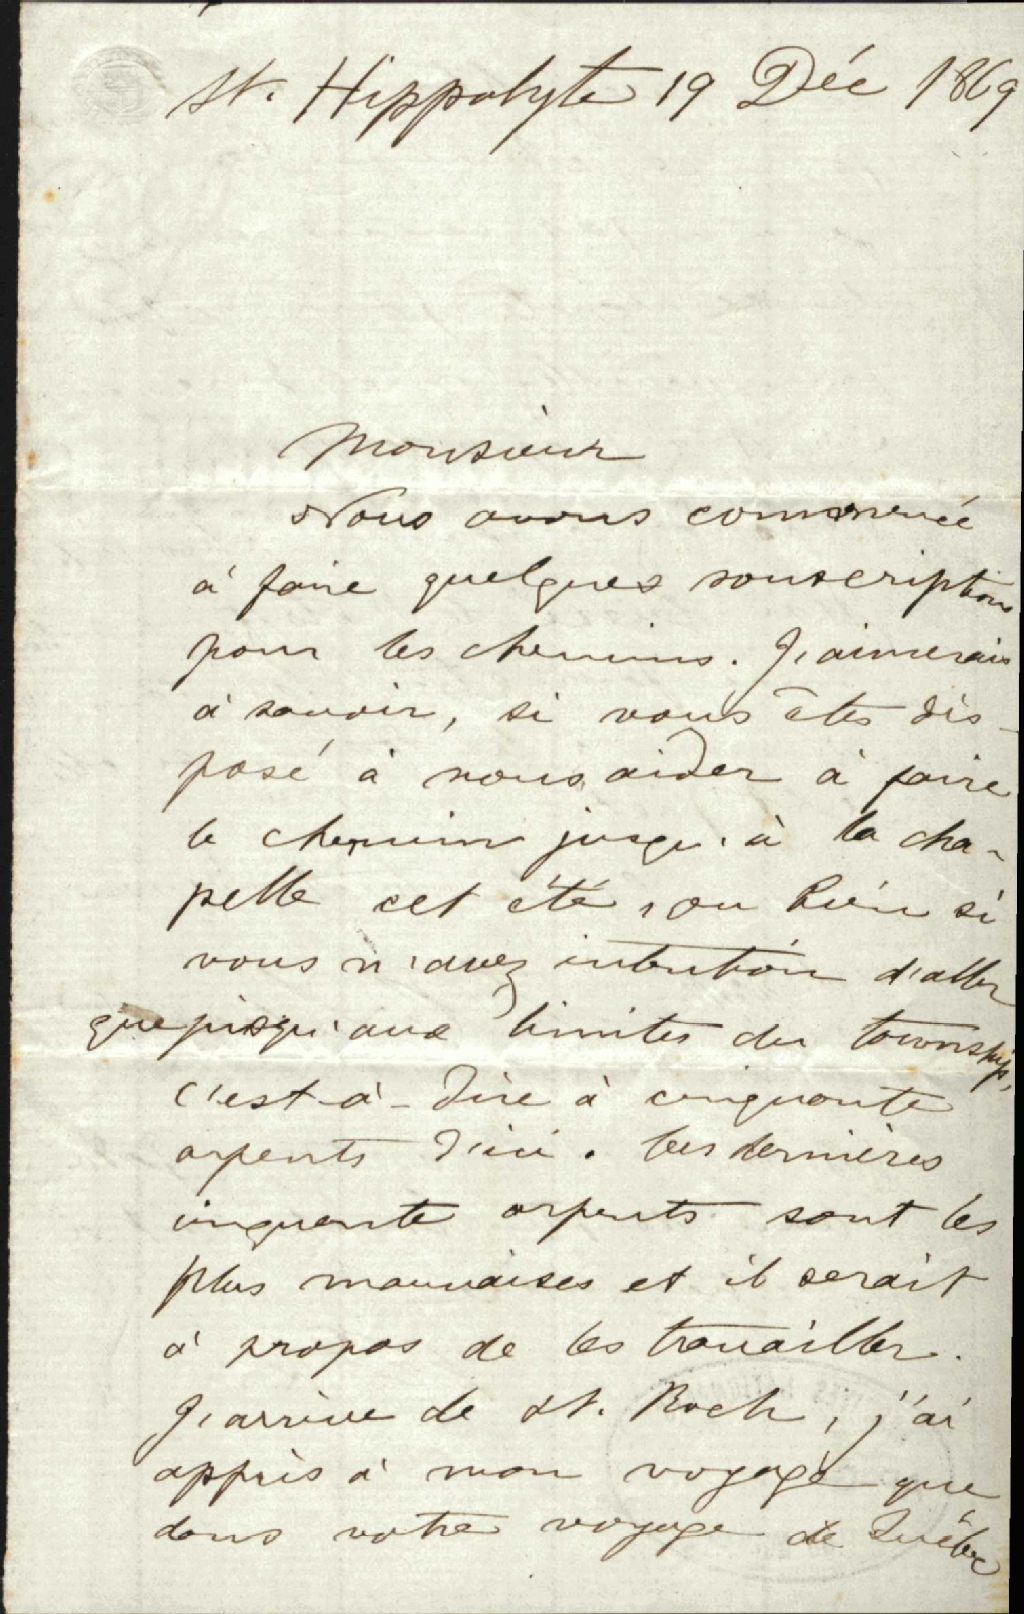 St. Hippolyte 19 Déc 1869
Monsieur
Nous avons commencé
à faire quelques souscriptions
pour les chemins. J'aimerais
à savoir, si vous êtes dis-
posé à nous aider à faire
le chemin jusqu'à la cha-
pelle cet été, ou bien si
vous n'avez intention d'aller
que jusqu'aux limites du township,
c'est-à-dire à cinquante
arpents d'ici. Les dernières
cinquante arpents sont les
plus mauvaises et il serait
à propos de les travailler.
J'arrive de St. Roch, j'ai
appris à mon voyage que
dans votre voyage de Québec